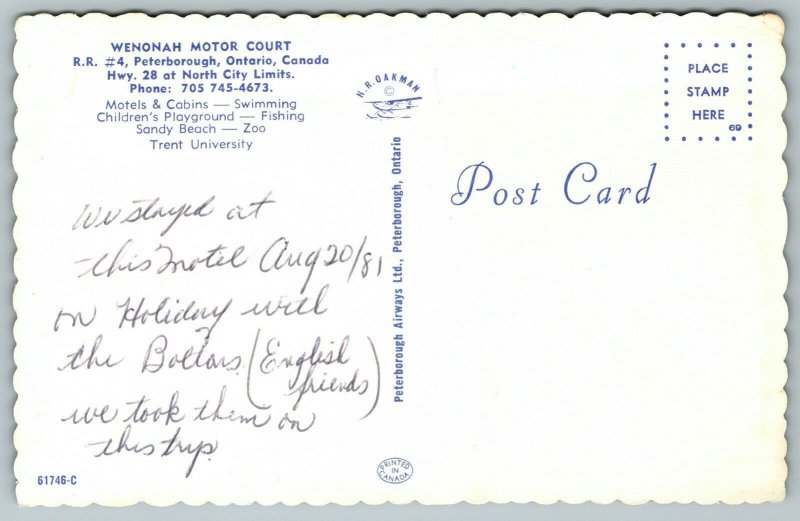 WENONAH MOTOR COURT
R.R. #4, Peterborough, Ontario, Canada
Hwy. 28 at North City Limits.
Phone: 705 745-4673.
Motels & Cabins — Swimming
Children's Playground — Fishing
Sandy Beach — Zoo
Trent University
H.R. OAKMAN
©
Peterborough Airways Ltd., Peterborough, Ontario
PLACE
STAMP
HERE
69
Post Card
We stayed at
this motel Aug 20/81
on Holiday with
the (English
friends)
we took them on
this trip.
61746-C
PRINTED
IN
CANADA